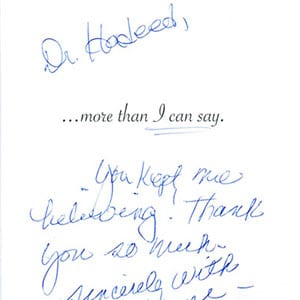 Dr. Hadeed,
...more than I can say.
You kept me
believing! Thank
you so much-
sincerely with